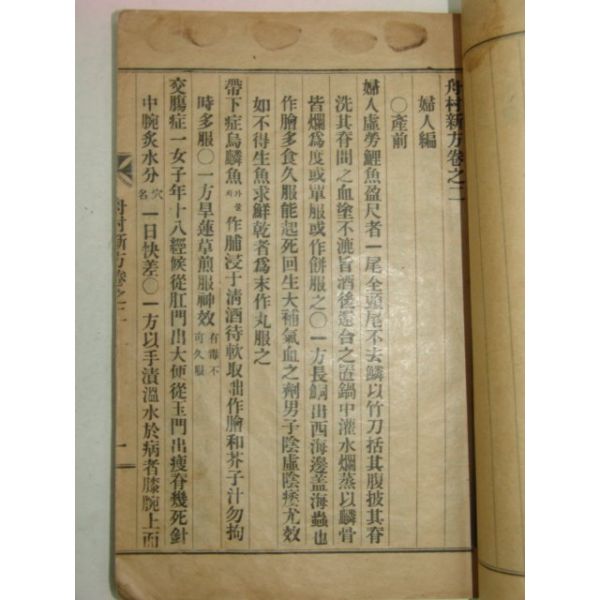 舟村新方卷之二
婦人編
○產前
婦人虛勞鯉魚盈尺者一尾全頭尾不去鱗以竹刀括其腹披其脊
洗其脊間之血塗不漉旨酒後還合之置鍋中灌水爛蒸以鱗骨
皆爛爲度或單服或作餠服之○一方長鯛出西海邊盖海蟲也
作膾多食久服能起死回生大補氣血之劑男子陰虛陰痿尤效
如不得生魚求鮮乾者爲末作丸服之
帶下症烏鱗魚가물치作脯浸于淸酒待軟取出作膾和芥子汁勿拘
時多服○一方旱蓮草煎服神效有毒不可久服
交膓症一女子年十八經候從肛門出大便從玉門出瘦脊幾死針
中脘炙水分穴名一日快差○一方以手漬溫水於病者膝腕上面
舟村新方卷之二
一